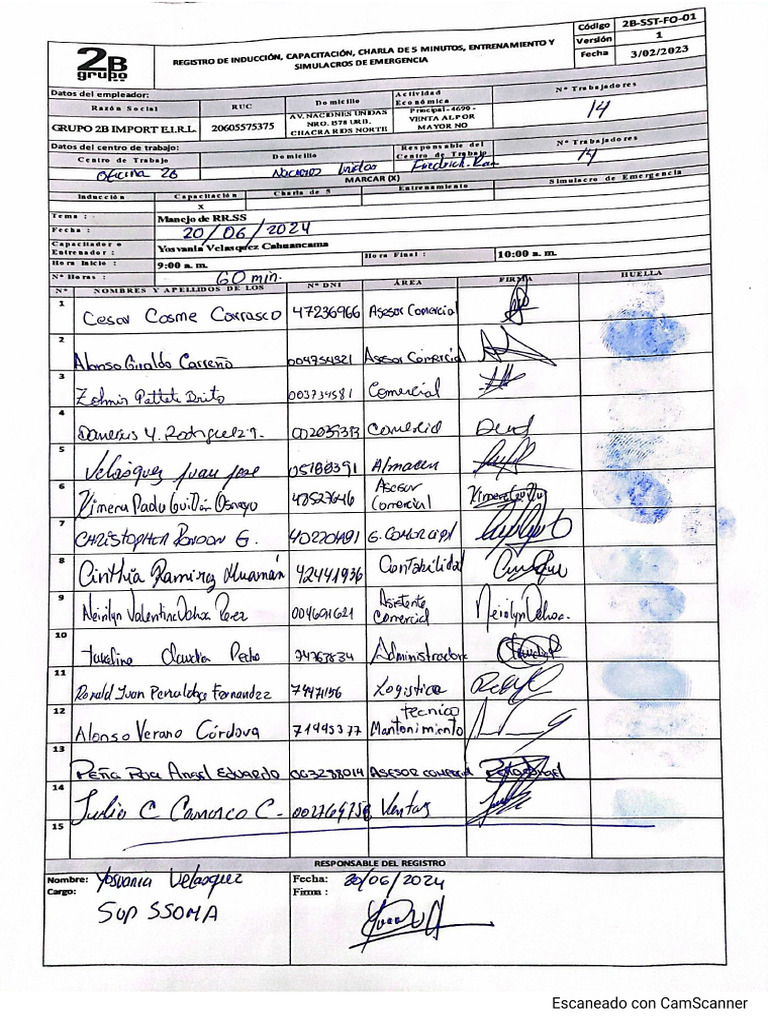 2B
grupo
REGISTRO DE INDUCCIÓN, CAPACITACIÓN, CHARLA DE 5 MINUTOS, ENTRENAMIENTO Y
SIMULACROS DE EMERGENCIA
Código 2B-SST-FO-01
Versión 1
Fecha 3/02/2023
Datos del empleador:
Razón Social RUC Domicilio Actividad Económica Nº Trabajadores
GRUPO 2B IMPORT E.I.R.L. 20605575375 AV. NACIONES UNIDAS NRO. 1578 URB. CHACRA RIOS NORTE Principal - 4690 - VENTA AL POR MAYOR NO 14
Datos del centro de trabajo:
Centro de Trabajo Domicilio Responsable del Centro de Trabajo Nº Trabajadores
Oficina 2B Naciones Unidas Fredrick 14
MARCAR (X)
Inducción Capacitación Charla de 5 Entrenamiento Simulacro de Emergencia
X
Tema : Manejo de RR.SS
Fecha : 20/06/2024
Capacitador o Entrenador : Yosvania Velasquez Cahuancama
Hora Inicio : 9:00 a. m. Hora Final : 10:00 a. m.
Nº Horas : 60 min.
Nº NOMBRES Y APELLIDOS DE LOS Nº DNI ÁREA FIRMA HUELLA
1 Cesar Cosme Carrasco 47236966 Asesor Comercial
2 Alonso Giraldo Carreño 004754321 Asesor Comercial
3 003734581 Comercial
4 Comercial
5 Velásquez Juan José 05188391 Almacen
6 Ximena Guillén Asesor Comercial
7 CHRISTOPHER G. G. Comercial
8 Cinthia Ramirez Huamán 42441936 Contabilidad
9 Neirilyn Valentina Ochoa Perez 004691621 Asistente Comercial Neirilyn Ochoa.
10 Claudia Administradora
11 Ronald Juan Fernandez 74471156 Logistica
12 Alonso Verano Córdova 71445377 Tecnico Mantenimiento
13 PEÑA ROA ANGEL EDUARDO 003238014 ASESOR COMERCIAL
14 Julio C Camarco C. Ventas
15
RESPONSABLE DEL REGISTRO
Nombre: Yosvania Velasquez Fecha: 20/06/2024
Cargo: Sup SSOMA Firma :
Escaneado con CamScanner